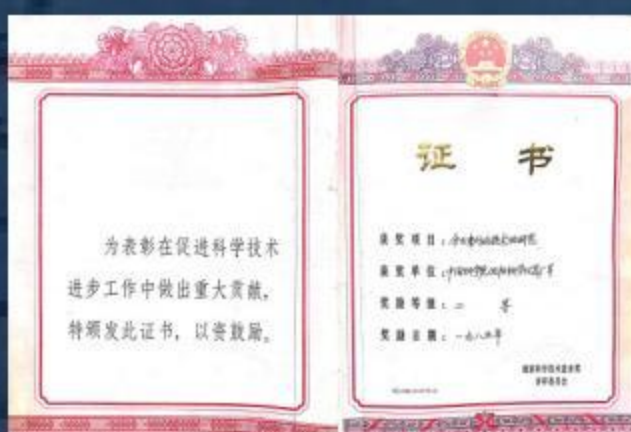 为表彰在促进科学技术
进步工作中做出重大贡献,
特颁发此证书，以资鼓励。
证 书
获奖项目：
获奖单位：
奖励等级：二 等
奖励日期：一九八五年
国家科学技术进步奖
评审委员会